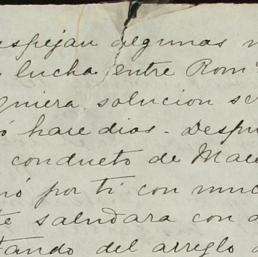 espejan algunas
lucha entre Rom
quiera solucion se
ó hace dias. Despu
conducto de Mac
nó por ti con muc
te saludara con
tando del arreglo